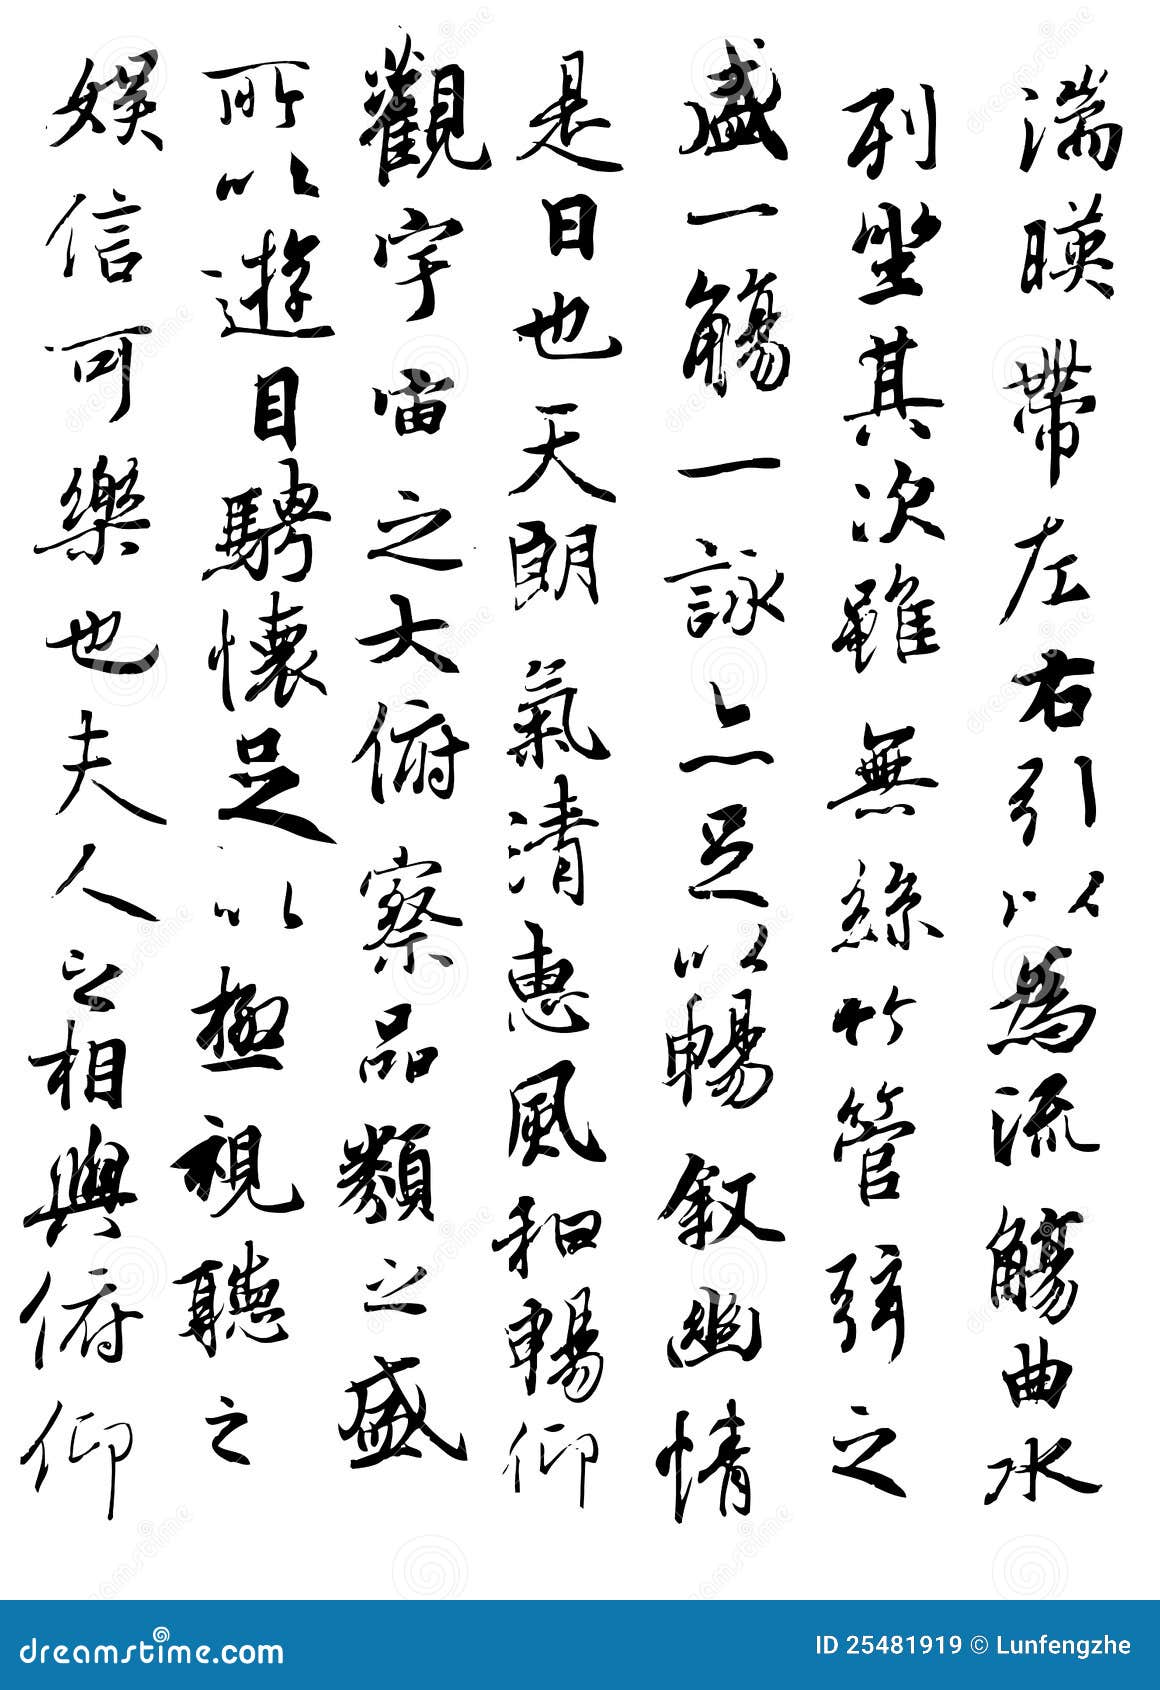 湍暎帶左右引以為流觴曲水
列坐其次雖無絲竹管弦之
盛一觴一詠亦足以暢敘幽情
是日也天朗氣清惠風和暢仰
觀宇宙之大俯察品類之盛
所以遊目騁懷足以極視聽之
娛信可樂也夫人之相與俯仰
dreamstime.com
ID 25481919 © Lunfengzhe